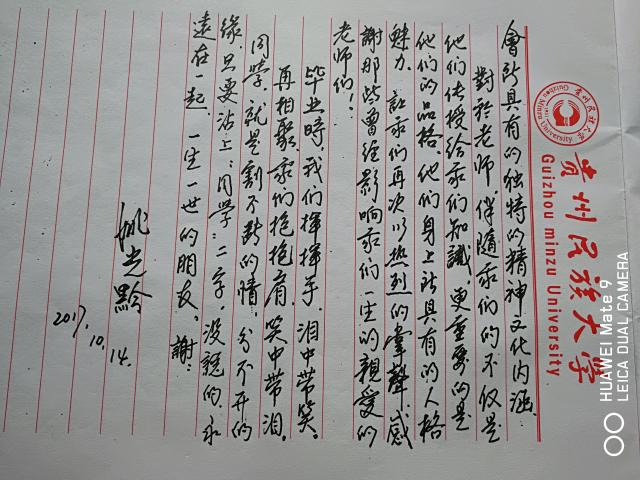 贵州民族大学
Guizhou minzu University
贵州民族大学
Guizhou Minzu University
會所具有的独特的精神文化内涵.
對於老师,伴隨我们的不仅是
他们传授给我们知識,更重要的是
他们的品格.他们身上所具有的人格
魅力.讓我们再次以热烈的掌聲,感
謝那些曾经影响我们一生的親爱的
老师们!
毕业時,我们揮揮手,泪中带笑。
再相聚,我们抱抱肩,笑中带泪。
同學,就是割不断的情,分不开的
缘.只要沾上:同学:二字,没説的,永
遠在一起,一生一世的朋友,謝:
姚光黔
2017.10.14.
HUAWEI Mate 9
LEICA DUAL CAMERA